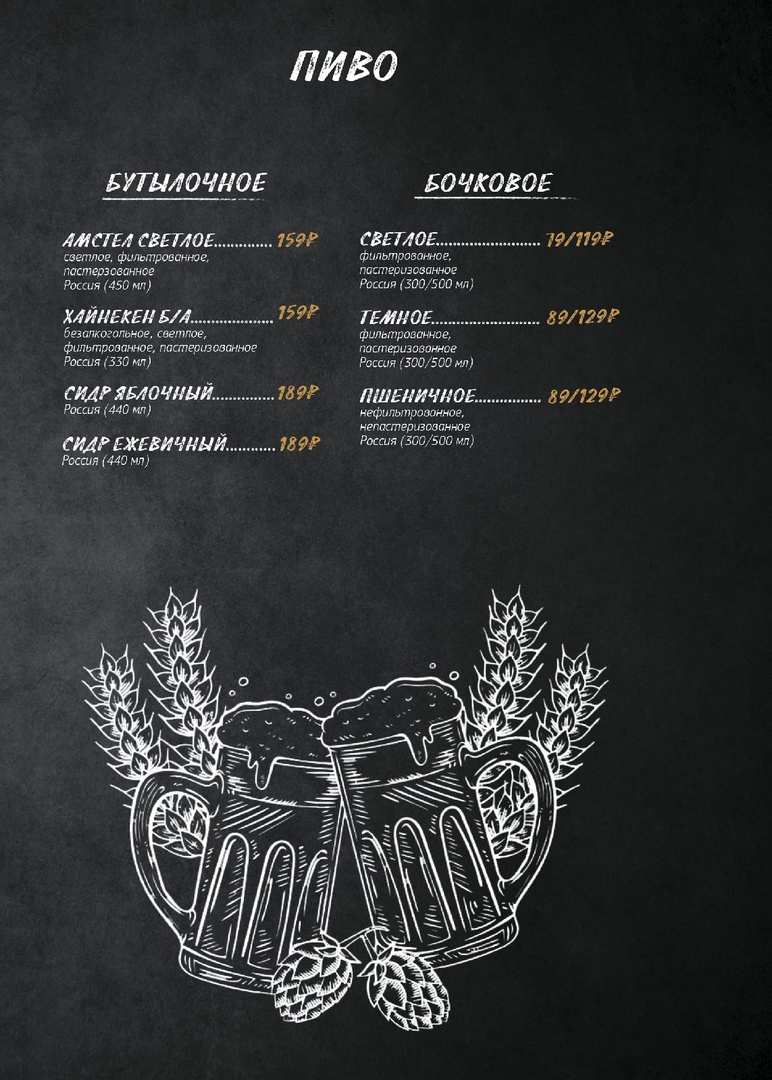 ПИВО
БУТЫЛОЧНОЕ
АМСТЕЛ СВЕТЛОЕ.............. 159₽
светлое, фильтрованное,
пастерзованное
Россия (450 мл)
ХАЙНЕКЕН Б/А.................... 159₽
безалкогольное, светлое,
фильтрованное, пастеризованное
Россия (330 мл)
СИДР ЯБЛОЧНЫЙ............... 189₽
Россия (440 мл)
СИДР ЕЖЕВИЧНЫЙ............ 189₽
Россия (440 мл)
БОЧКОВОЕ
СВЕТЛОЕ.......................... 79/119₽
фильтрованное,
пастеризованное
Россия (300/500 мл)
ТЕМНОЕ........................... 89/129₽
фильтрованное,
пастеризованное
Россия (300/500 мл)
ПШЕНИЧНОЕ................ 89/129₽
нефильтрованное,
непастеризованное
Россия (300/500 мл)